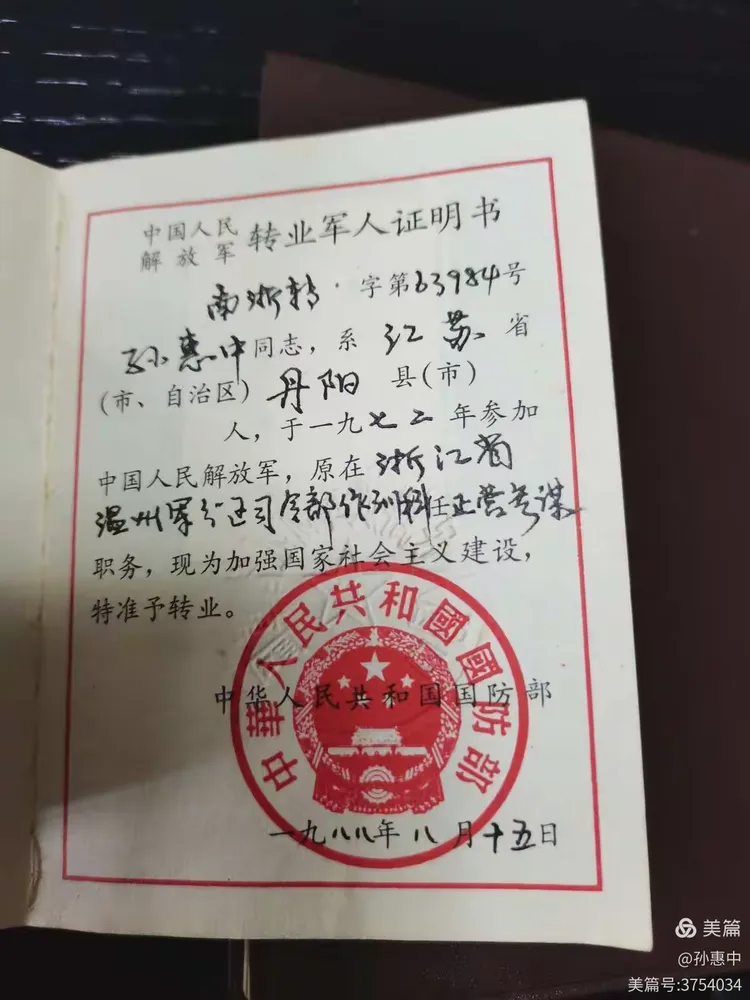 中国人民
解放军 转业军人证明书
南浙转·字第63984号
孙惠中同志，系江苏省
(市、自治区)丹阳县(市)
人，于一九七二年参加
中国人民解放军，原在浙江省
温州军分区司令部作训科任正营参谋
职务，现为加强国家社会主义建设，
特准予转业。
中华人民共和国国防部
中華人民共和國國防部
一九八八年八月十五日
美篇
@孙惠中
美篇号:3754034